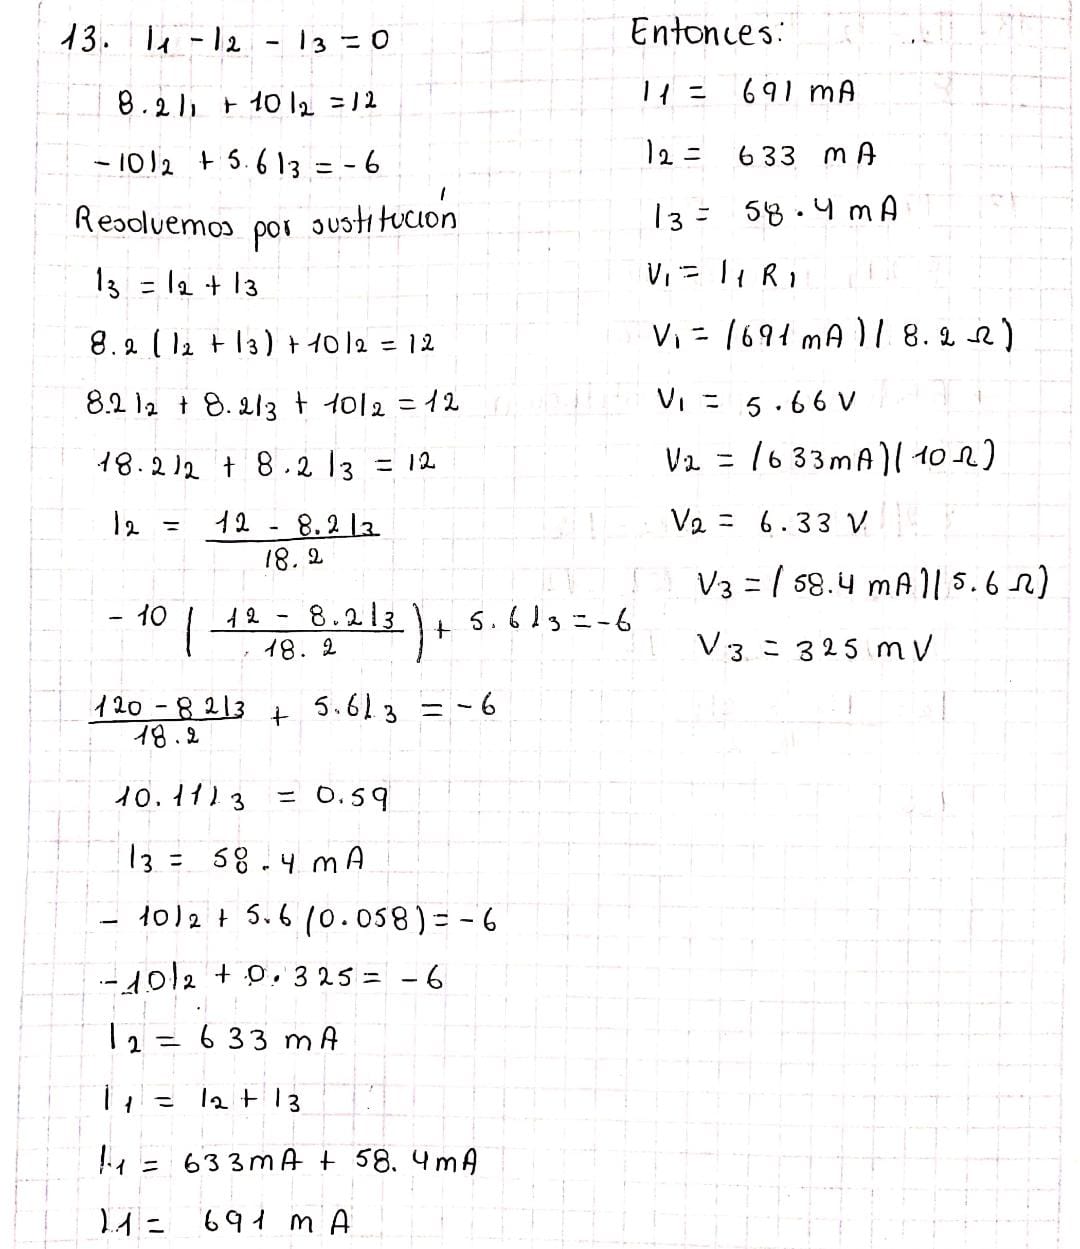 13. I1 - I2 - I3 = 0
8.2I1 + 10I2 = 12
-10I2 + 5.6I3 = -6
Resolvemos por sustitución
I3 = I2 + I3
8.2(I2 + I3) + 10I2 = 12
8.2I2 + 8.2I3 + 10I2 = 12
18.2I2 + 8.2I3 = 12
I2 = 12 - 8.2I3
18.2
-10 ( 12 - 8.2I3 ) + 5.6I3 = -6
18.2
120 - 82I3 + 5.6I3 = -6
18.2
10.11I3 = 0.59
I3 = 58.4 mA
- 10I2 + 5.6(0.058) = -6
-10I2 + 0.325 = -6
I2 = 633 mA
I1 = I2 + I3
I1 = 633mA + 58.4mA
I1 = 691 mA
Entonces:
I1 = 691 mA
I2 = 633 mA
I3 = 58.4 mA
V1 = I1 R1
V1 = (691 mA)(8.2 Ω)
V1 = 5.66V
V2 = (633mA)(10 Ω)
V2 = 6.33 V
V3 = (58.4 mA)(5.6 Ω)
V3 = 325 mV